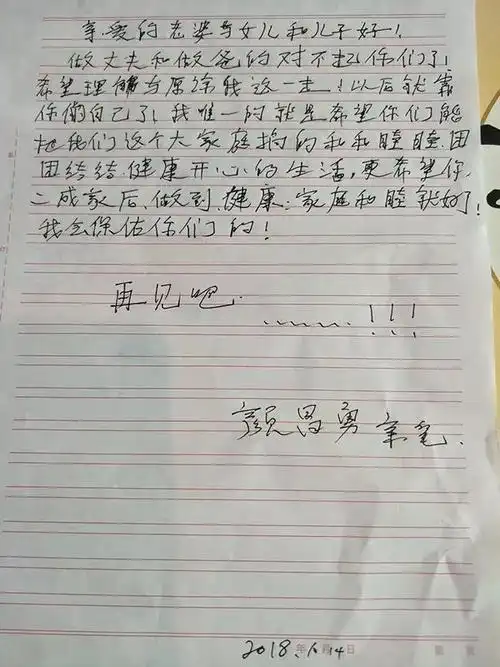 亲爱的老婆与女儿和儿子好!
做丈夫和做爸的对不起你们了!
希望理解与原谅我这一走!以后就靠
你们自己了!我唯一的就是希望你们能
把我们这个大家庭搞的和和睦睦.团
团结结.健康开心的生活,更希望你
二成家后.做到.健康:家庭和睦就好!
我会保佑你们的!
再见吧.
.........!!!
颜昌勇 亲笔.
2018年6月14日